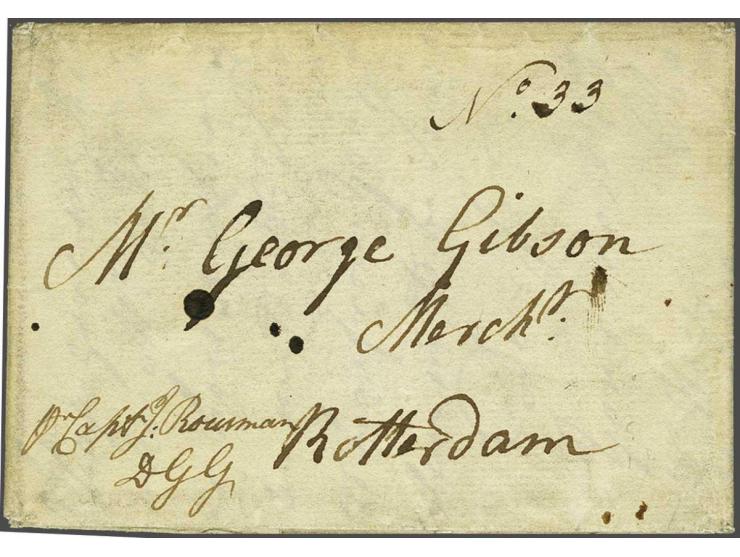 No. 33
Mr. George Gibson
Mercht.
Rotterdam
pr Capt J: Rousman
D G G